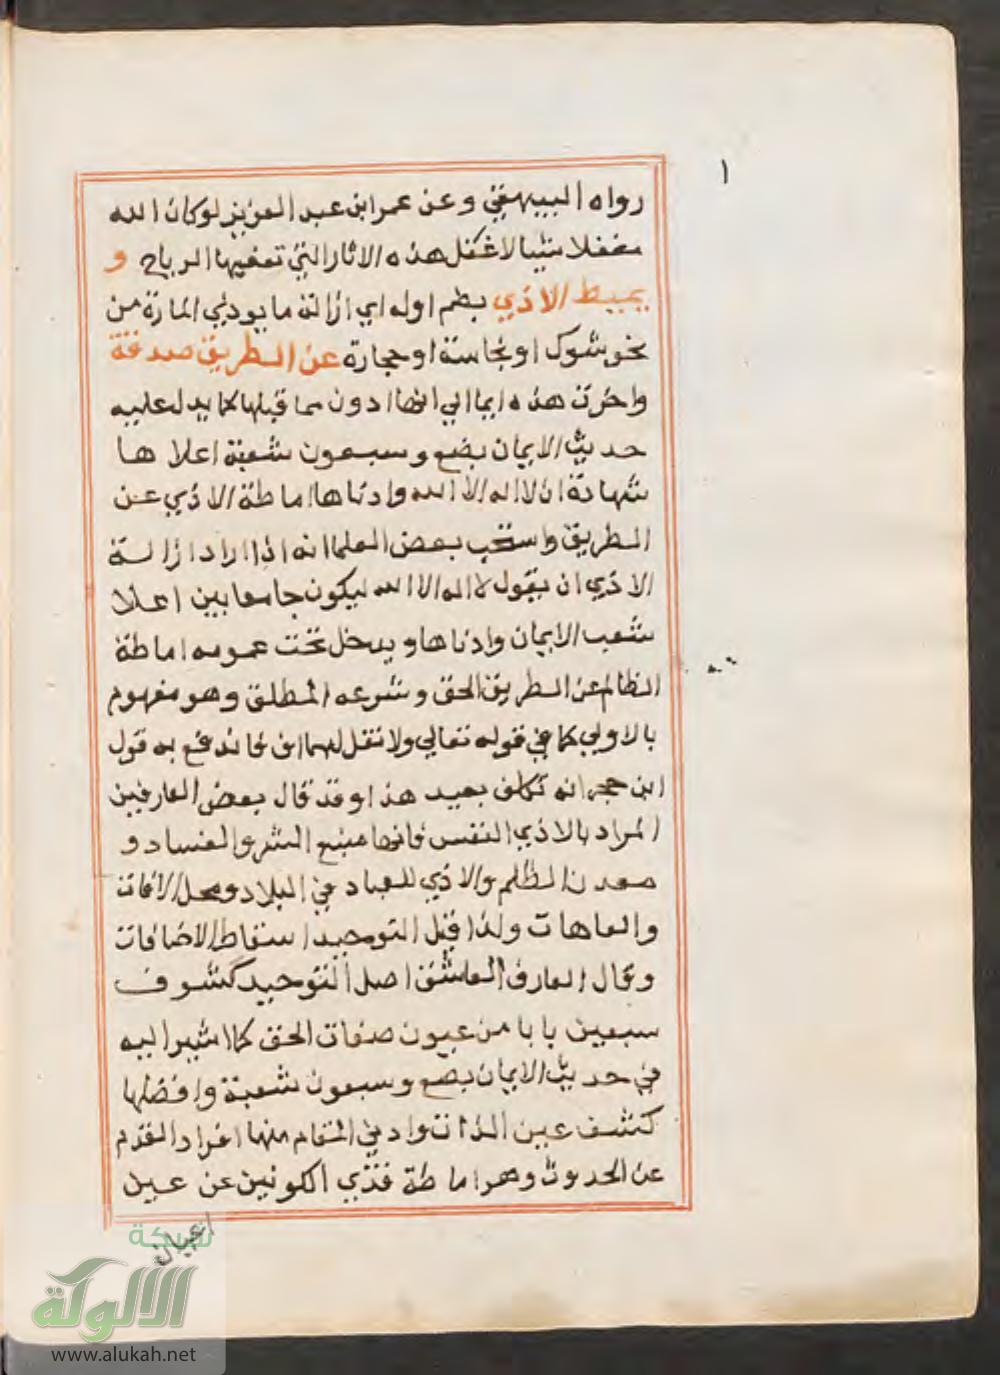 ١
رواه البيهقي وعن عمر ابن عبد العزيز لو كان الله
مغفلا شيا لاغفل هذه الاثار التي تعفيها الرياح و
يميط الاذي بضم اوله اي ازالة ما يوذي المارة من
نحو شوك او نجاسة او حجارة عن الطريق صدقة
واخرت هذه ايما الي انها ادون مما قبلها كما يدل عليه
حديث الايمان بضع وسبعون شعبة اعلا ها
شهادة ان لا اله الا الله وادناها اماطة الاذي عن
الطريق واستحب بعض العلما انه اذا اراد ازالة
الاذي ان يقول لا اله الا الله ليكون جامعا بين اعلا
شعب الايمان وادناها ويدخل تحت عمومه اماطة
الظالم عن الطريق الحق وشرعه المطلق وهو مفهوم
بالاولي كما في قوله تعالي ولا تقل لهما اف فاندفع به قول
ابن حجر انه تكلف بعيد هذا وقد قال بعض العارفين
المراد بالاذي النفس فانها منبع الشر والفساد و
معدن الظلم والاذي للعباد في البلاد ومحل الافات
والعاهات ولذا قيل التوحيد اسقاط الاضافات
وقال العارف العاشق اصل التوحيد كشوف
سبعين بابا من عيون صفات الحق كما اشير اليه
في حديث الايمان بضع وسبعون شعبة وافضلها
كشف عين الذات وادني المقام منها افراد القدم
عن الحدوث وهو اماطة قذي الكونين عن عين
اعيان
شبكة
الألوكة
www.alukah.net